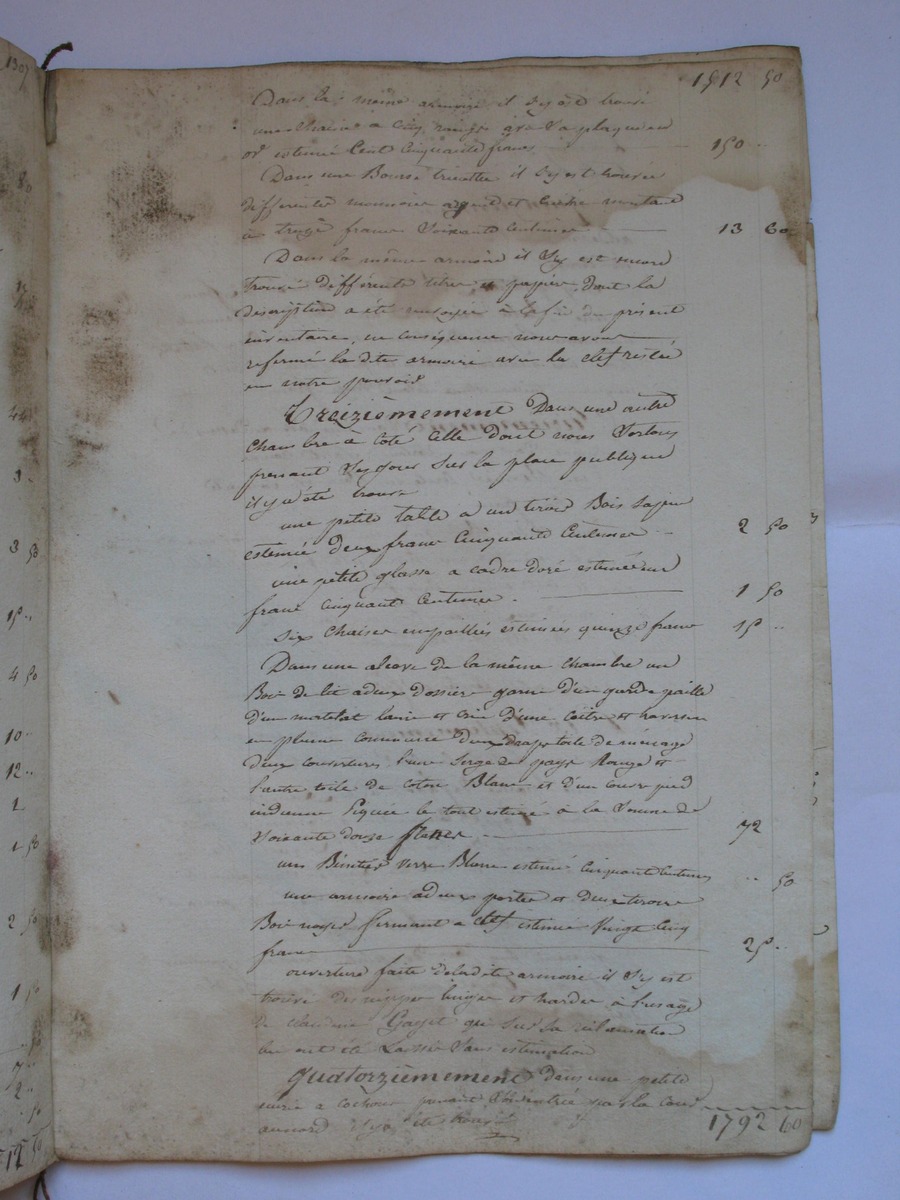 1512 50
Dans la même armoire il s'y est trouvé
une chaine a cinq rangs avec sa plaque en
or estimée Cent Cinquante francs 150 ..
Dans une Bourse il s'y est trouvée
différentes monnoies argent et cuivre montant
à Treize francs Soixante Centimes 13 60
Dans la même armoire il s'y est encore
trouvé différents titres et papiers dont la
description a été renvoyée à la fin du présent
inventaire, en conséquence nous avons
refermé la dite armoire avec la clef restée
en notre pouvoir
Treizièmement Dans une autre
chambre à coté celle dont nous sortons
prenant ses jours sur la place publique
il y a été trouvé
une petite table a un tiroir Bois sapin
estimée deux francs Cinquante Centimes 2 50
une petite glasse a cadre doré estimée un
franc cinquant Centimes. 1 50
Six chaises empaillées estimées quinze francs 15 ..
Dans une alcove de la même chambre un
Bois de lit a deux dossiers garni d'un garde paille
d'un matelat laine et crin d'une coitre et traversin
en plume couverture deux draps toile de ménage
deux couvertures l'une serge de pays Rouge et
l'autre toile de coton Blanc et d'un couvre pied
indienne Piquée le tout estimé à la somme de
Soixante douze francs 72
un Bénitier verre Blanc estimé cinquante Centimes .. 50
une armoire a deux portes et deux tiroirs
Bois noyer fermant a clef estimée Vingt Cinq
francs 25 ..
ouverture faite de la dite armoire il s'y est
trouvé des nippes linges et hardes à l'usage
de Claudine Gayet qui sur sa réclamation
lui ont été Laissés Sans estimation
Quatorzièmement dans une petite
a cochons prenant son entrée par la cour
au nord il y a été trouvé
1792 60